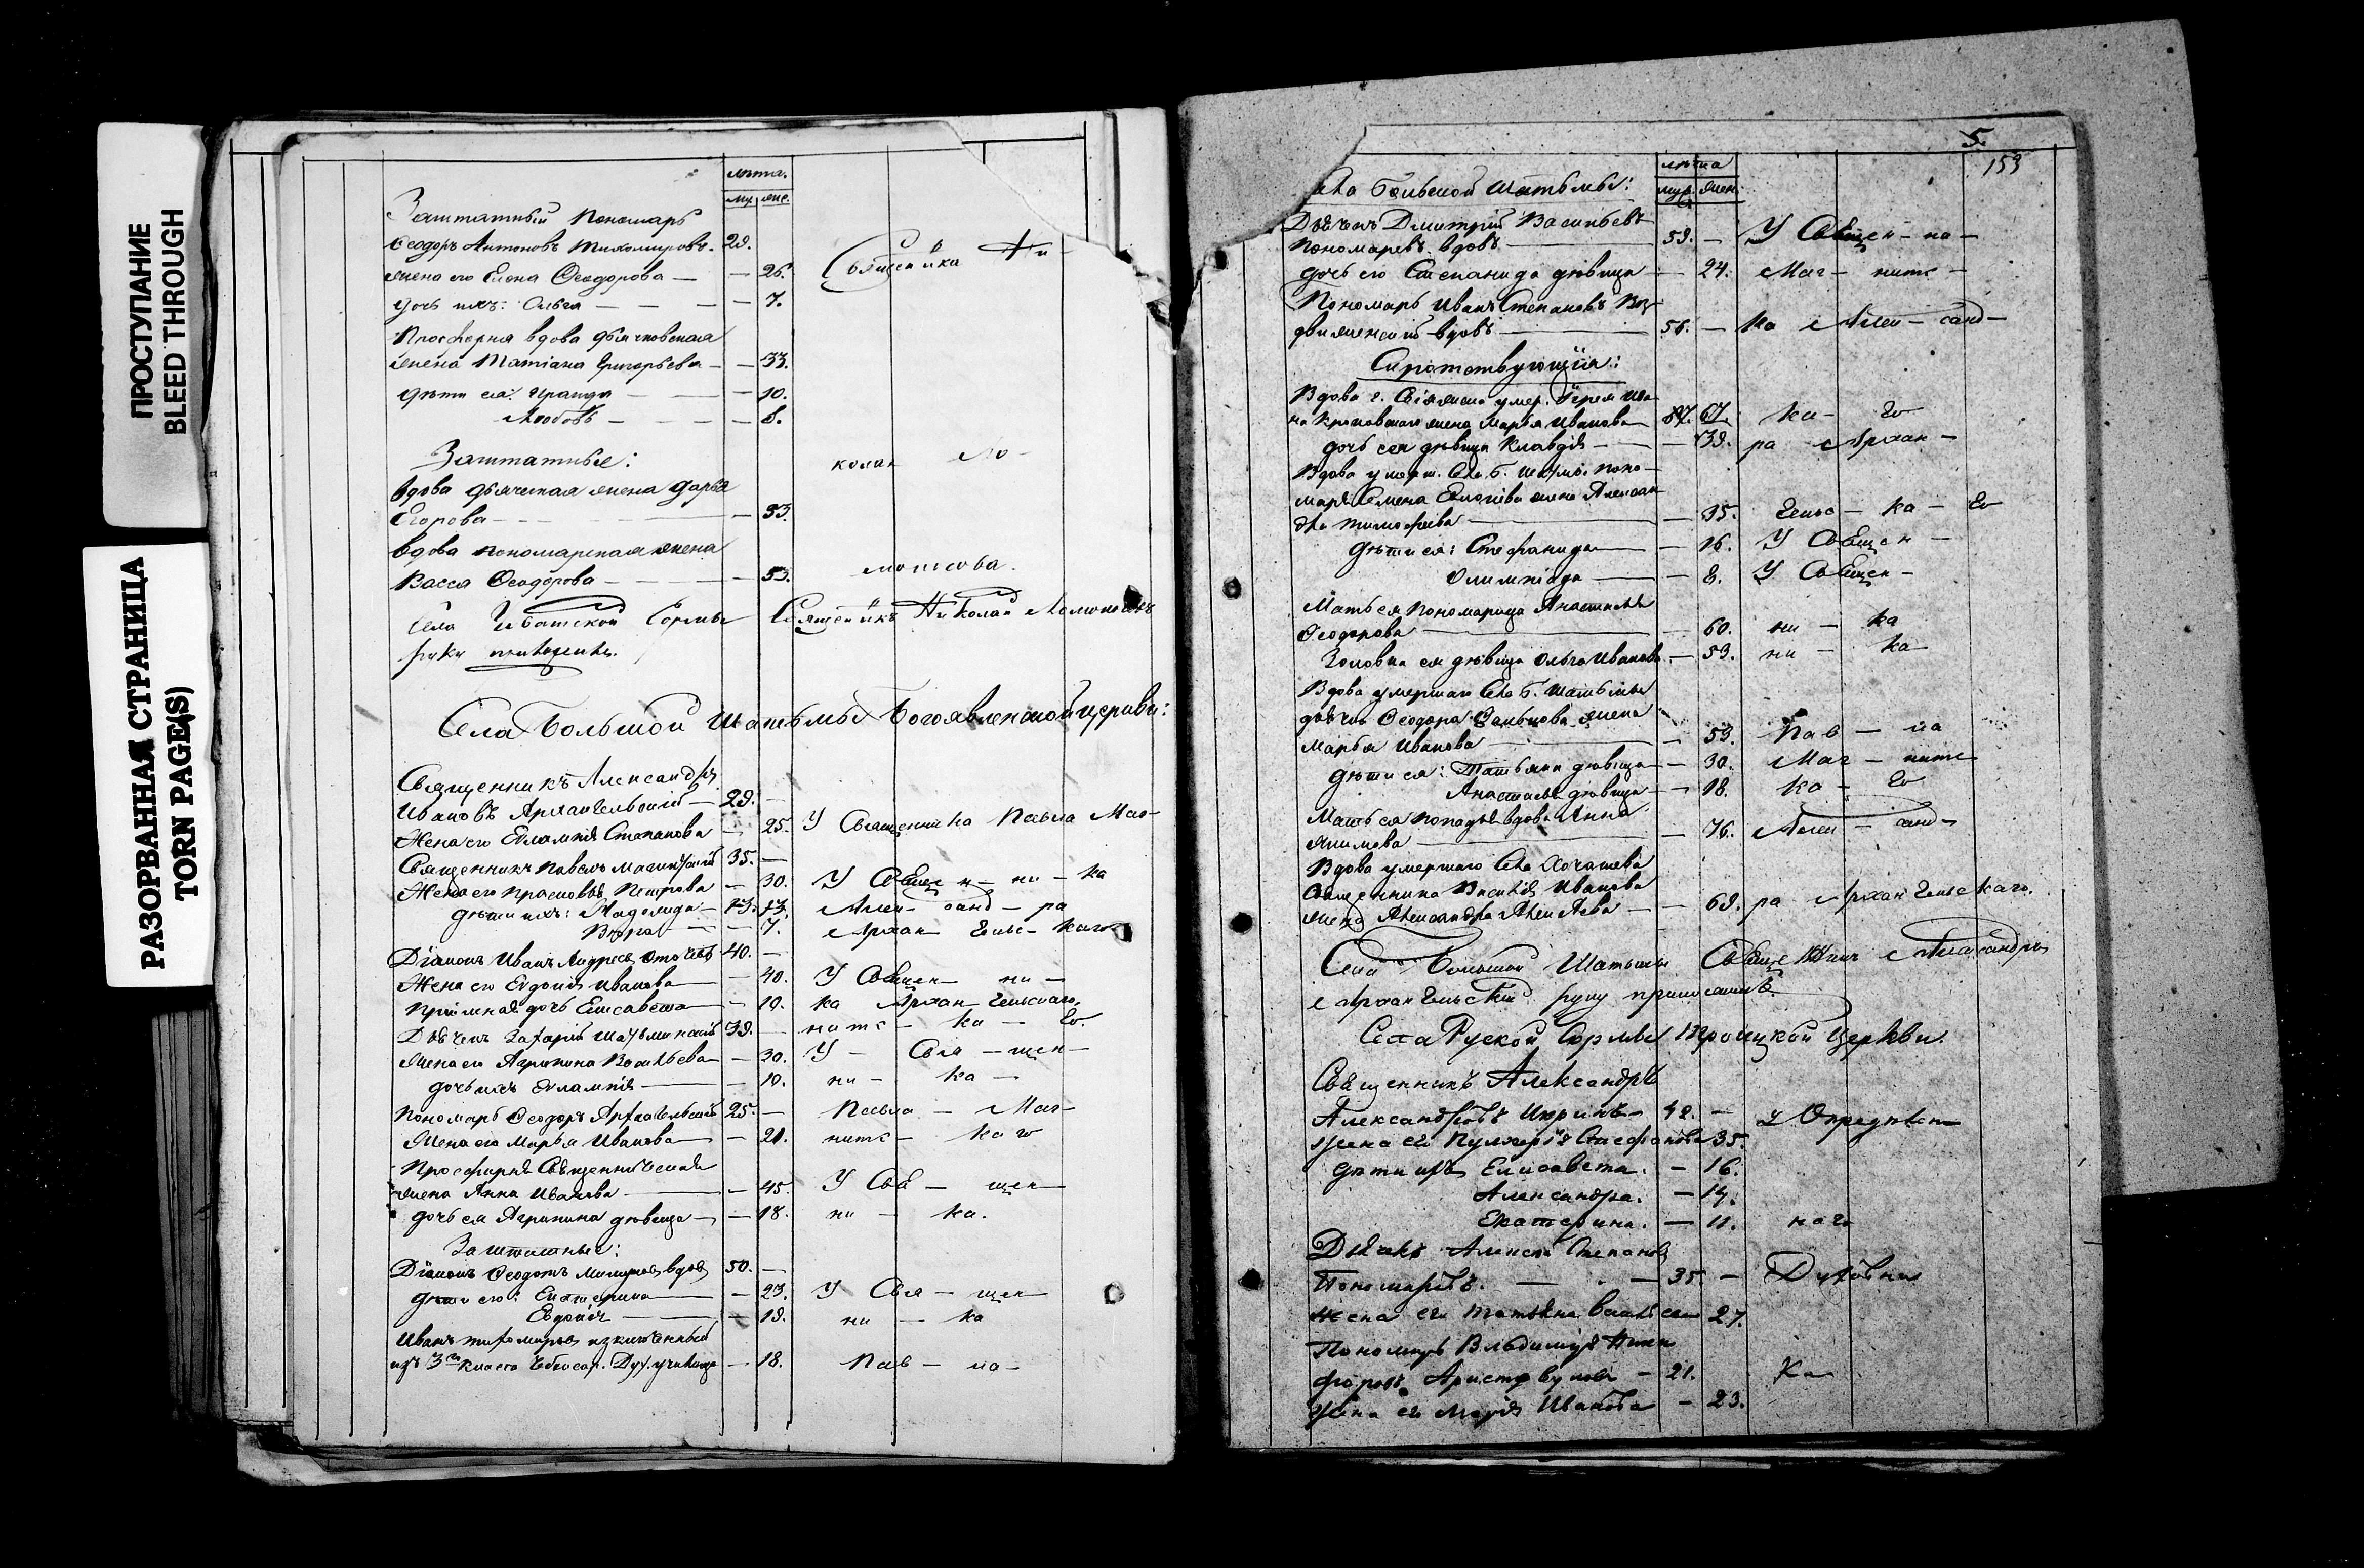 ПРОСТУПАНИЕ
BLEED THROUGH
РАЗОРВАННАЯ СТРАНИЦА
TORN PAGE(S)
лѣта.
му. же.
Заштатный Пономарь
Ѳеодоръ Антоновъ Тихомировъ. 29.
жена его Елена Ѳеодорова — — 26. Священика Ни-
дочь ихъ: Ольга — — — — 7.
Просфорня вдова дьячковская
жена Татіана Григорьева — — 33.
дѣти ея: — — — 10.
Любовь — — — — 8.
Заштатные:
колая Ло-
вдова дьяческая жена Дарья
Егорова — — — 53.
вдова пономарская жена
Васса Ѳеодорова — — — 53. моносова.
Села Сормы Священикъ Николай
руку приложилъ.
Села Большой Шатьмы Богоявленской церкви:
Священникъ Александръ
Ивановъ Архангельскій — 29. —
Жена его Евлампія Степанова — 25. У Священника Павла Маг-
Священникъ Павелъ Магнитскій 35. —
Жена его Прасковья Петрова — 30. У Свяще н — ни — ка
дѣти ихъ: — 13. 13. Алек- санд — ра
Вѣра — — 7. Архан- гельс- каго
Діаконъ Иванъ Андреевъ 40. —
Жена его Евдокія Иванова — 40. У Священ — ни —
пріимная дочь Елисавета — 10. ка Архан- гельскаго.
Дьячекъ Захарій Шатьминскій 39. — нитс — ка — го.
Жена его Агрипина Васильева — 30. У — Свя — щен —
дочь ихъ Евлампія — — 10. ни — ка —
Пономарь Ѳеодоръ Архангельскій 25. — Павла — Маг-
Жена его Марья Иванова — — 21. нитс — каго
Просфорня Священническая
жена Анна Иванова — — 45. У Свя — щен —
дочь ея Агрипина дѣвица — — 18. ни — ка.
Заштатные:
Діаконъ Ѳеодотъ вдов. 50. —
дѣти его: Екатерина — — 23. У Свя — щен —
Евдокія — — 19. ни — ка
Иванъ Тихомировъ изключенный
изъ 3го класса Чебоксар. Дух. училища — 18. Пав — ла —
5.
153
Села Большой Шатьмы:
лѣта
муж. жен.
Дьячекъ Дмитрій Васильевъ
Пономаревъ вдовъ — 59. — У Священ — ни —
дочь его Степанида дѣвица — 24. Маг — нитс —
Пономарь Иванъ Степановъ Воз-
движенскій вдовъ — 56. — ка Алек — санд —
Сиротствующія:
Вдова умер. Іерея Ива-
на жена Марья Иванова 67. ка — го
дочь ея дѣвица Клавдія — — 39. ра Архан —
Вдова умерш. Села Б. Шатьмы поно-
маря Семена жена Алексан-
дра Тимофеева — — 35. гельс — ка — го
дѣти ея: Стефанида — — 16. У Священ —
Олимпіада — — 8. У Священ —
Мать ея пономарица Анастасія
Ѳеодорова — — 60. ни — ка
Золовка ея дѣвица Ольга Иванова — 53. ни — ка
Вдова умершаго Села Б. Шатьмы
дьячка Ѳеодора жена
Марья Иванова — — 53. Пав — ла
дѣти ея: Татьяна дѣвица — 30. Маг — нитс
Анастасія дѣвица — 18. ка — го
Мать ея попадья вдова Анна
— 76. Алек — санд —
Вдова умершаго Села Хочашева
Священника Василія Иванова
жена Александра Алексѣева — — 69. ра Архангельскаго.
Села Большой Шатьмы Священникъ Александръ
Архангельскій руку приложилъ.
Села Руской Сормы Троицкой Церкви.
Священникъ Александръ
Александровъ — 42. — У Опредѣлен
жена его Пулхерія Стефанова 35.
дѣти ихъ Елисавета. — 16.
Александра. — 14.
Екатерина. — 11. наго
Дьячекъ Алексѣй Степановъ
Пономаревъ. — — 35. — Духовни
Жена его Татьяна Васильева 27.
Пономарь Владимиръ Ники-
форовъ — 21. Ка
Жена его Марія Иванова — 23.